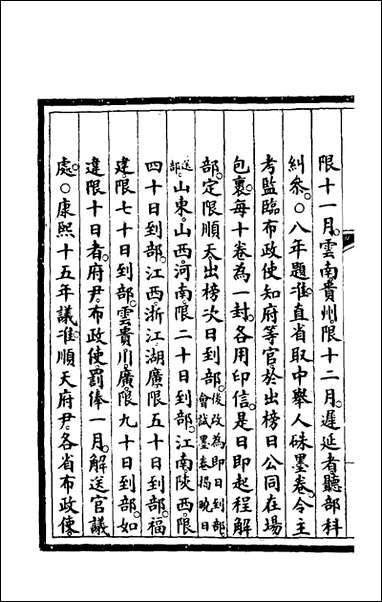 限十一月。雲南貴州限十二月。遲延者。聽部科
糾參。○八年題准。直省取中舉人硃墨卷。令主
考監臨布政使知府等官。於出榜日公同在場
包裹。每十卷為一封。各用印信。是日即起程解
部。定限順天出榜次日到部。後改為即日到部。會試墨卷。揭曉日送部。
山東山西河南限二十日到部。江南陝西限
四十日到部。江西浙江湖廣限五十日到部。福
建限七十日到部。雲貴川廣限九十日到部。如
違限十日者。府尹布政使罰俸一月。解送官議
處。○康熙十五年議准。順天府尹。各省布政使。